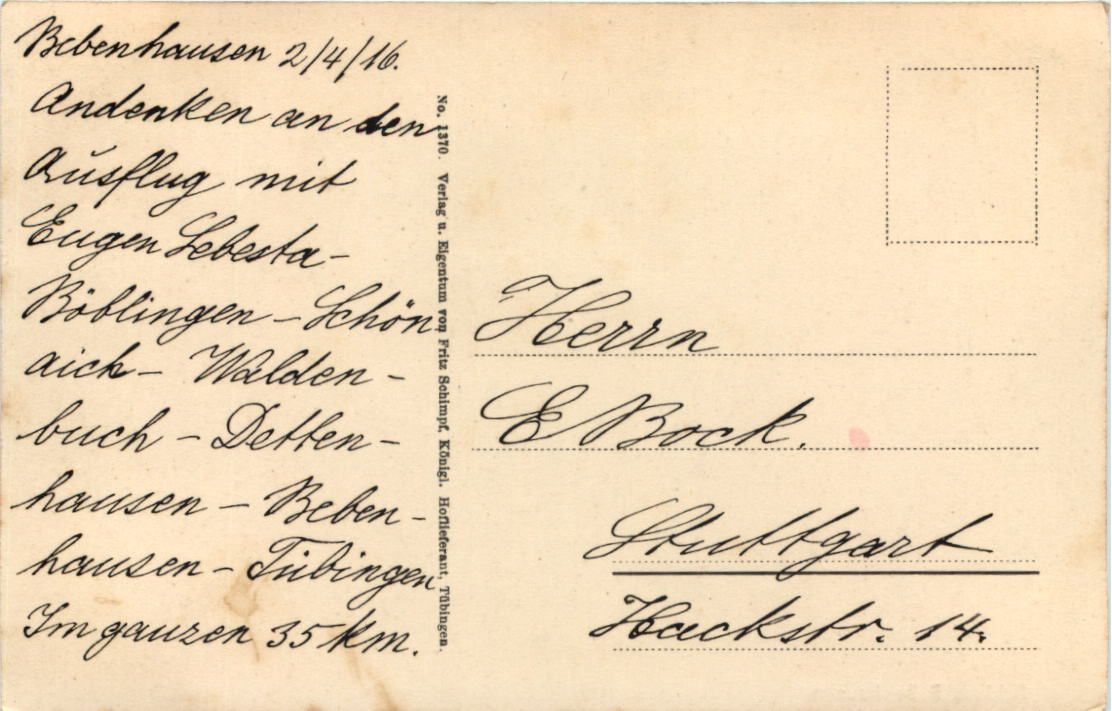 Bebenhausen 2/4/16.
Andenken an den
Ausflug mit
Eugen Sebesta-
Böblingen - Schön
aich - Walden -
buch - Detten -
hausen - Beben -
hausen - Tübingen
Im ganzen 35 km.
No. 1370. Verlag u. Eigentum von Fritz Schimpf, Königl. Hoflieferant, Tübingen.
Herrn
E Bock.
Stuttgart
Hackstr. 14.